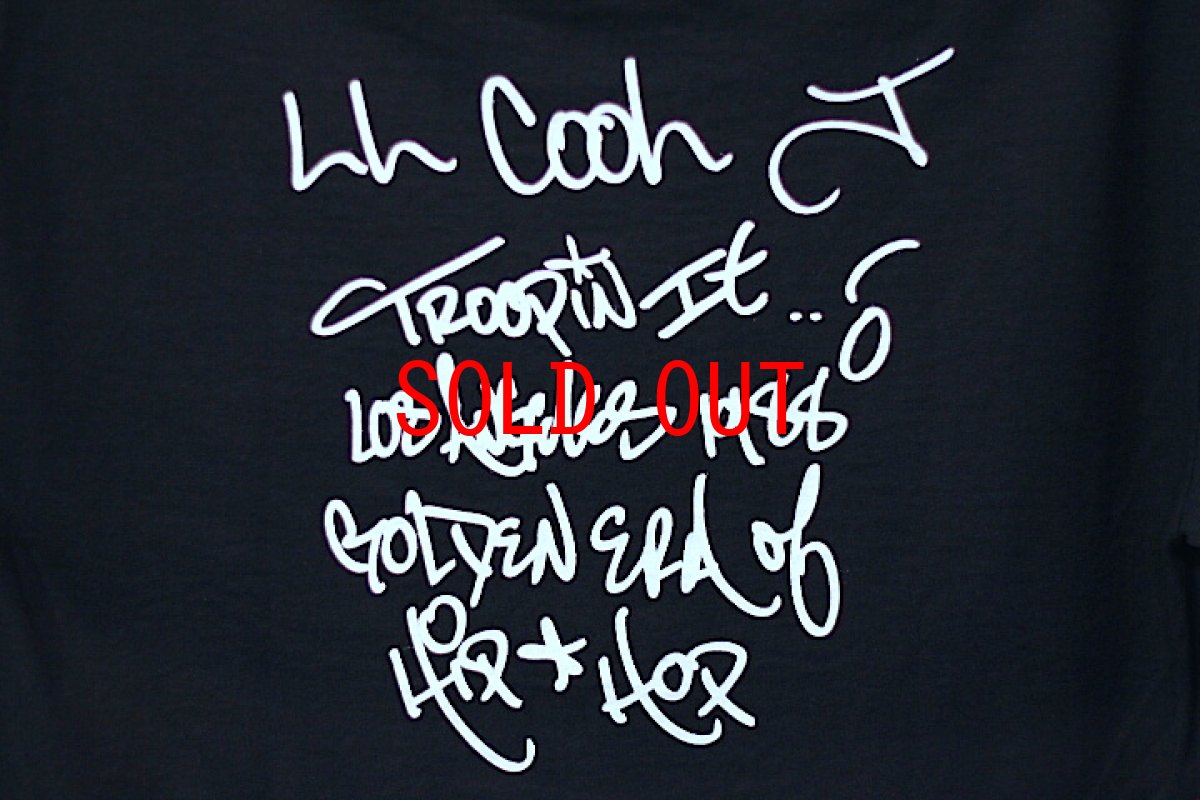 LL Cool J
TROOPiN It..
SOLD OUT
LOS ANGELES 1988
GOLDEN ERA of
HiP * HOP